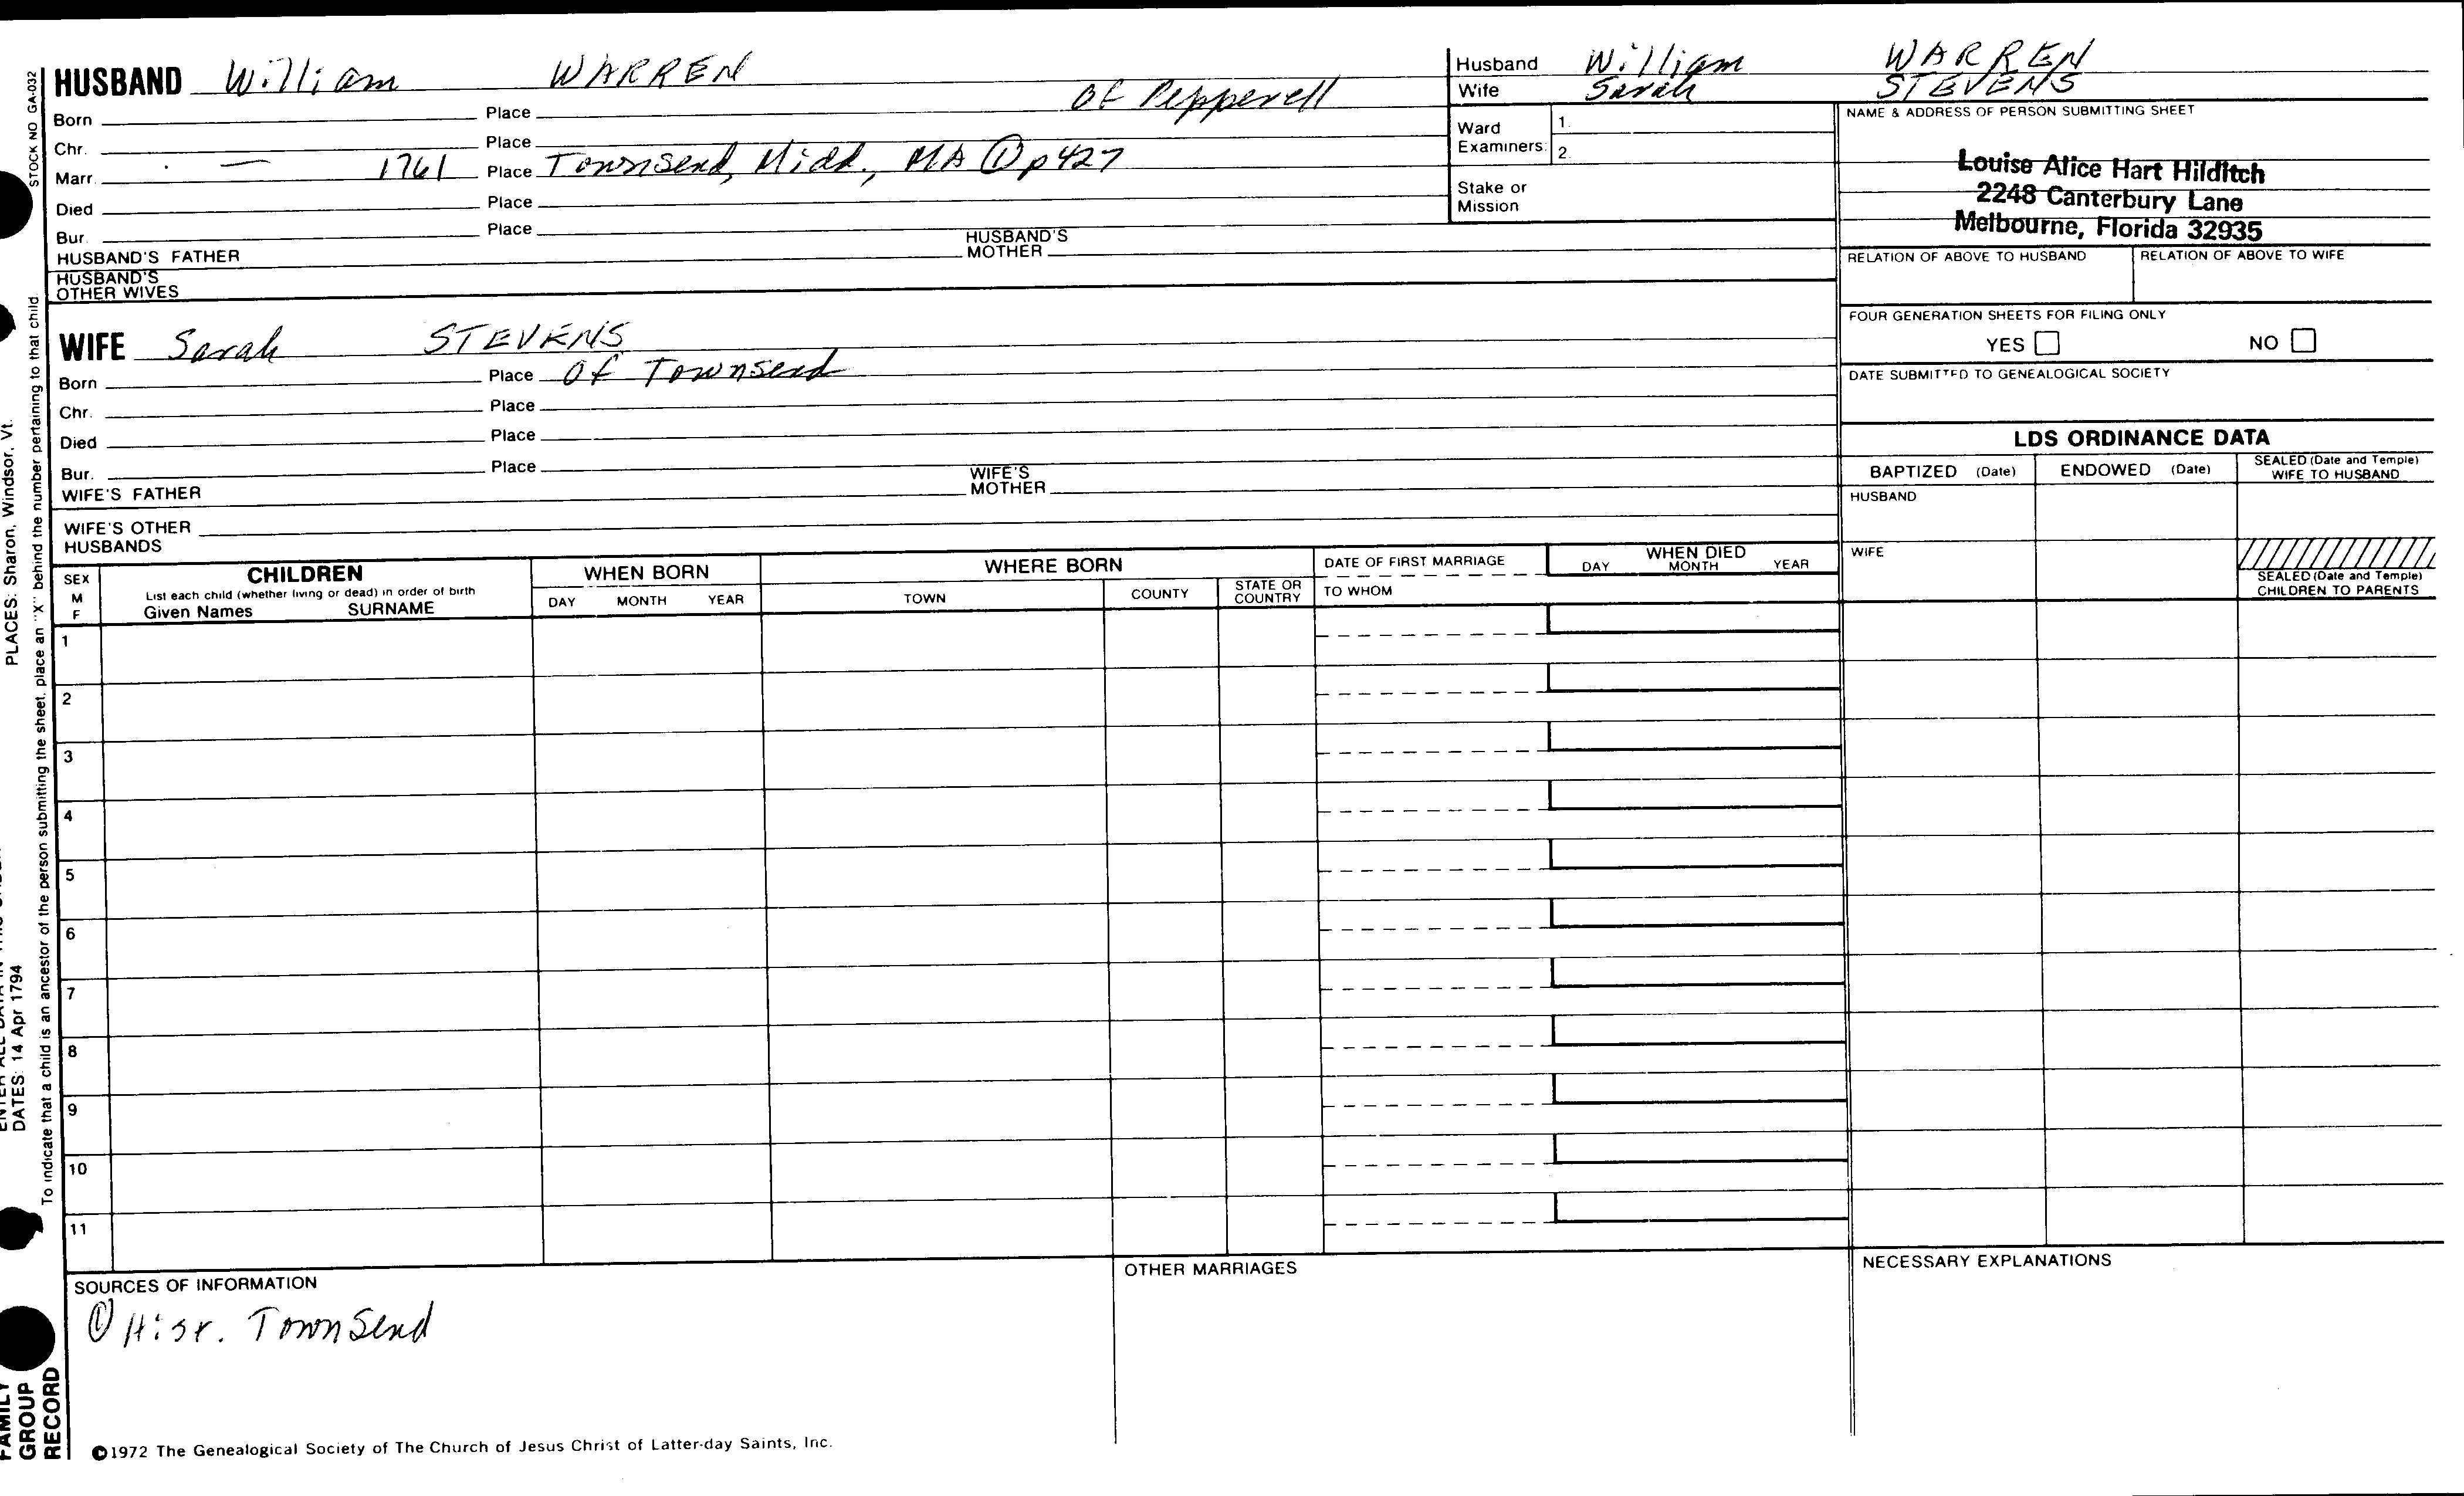 HUSBAND William WARREN
Born Place Of Pepperell
Chr. Place
Marr. — 1761 Place Townsend, Midd., MA ① p427
Died Place
Bur. Place
HUSBAND'S FATHER HUSBAND'S MOTHER
HUSBAND'S OTHER WIVES
Husband William WARREN
Wife Sarah STEVENS
Ward Examiners: 1.
2.
Stake or Mission
NAME & ADDRESS OF PERSON SUBMITTING SHEET
Louise Alice Hart Hilditch
2248 Canterbury Lane
Melbourne, Florida 32935
RELATION OF ABOVE TO HUSBAND RELATION OF ABOVE TO WIFE
FOUR GENERATION SHEETS FOR FILING ONLY
YES NO
DATE SUBMITTED TO GENEALOGICAL SOCIETY
WIFE Sarah STEVENS
Born Place Of Townsend
Chr. Place
Died Place
Bur. Place
WIFE'S FATHER WIFE'S MOTHER
WIFE'S OTHER HUSBANDS
LDS ORDINANCE DATA
BAPTIZED (Date) ENDOWED (Date) SEALED (Date and Temple) WIFE TO HUSBAND
HUSBAND
WIFE
SEALED (Date and Temple) CHILDREN TO PARENTS
SEX M F
CHILDREN
List each child (whether living or dead) in order of birth
Given Names SURNAME
WHEN BORN
DAY MONTH YEAR
WHERE BORN
TOWN COUNTY STATE OR COUNTRY
DATE OF FIRST MARRIAGE
TO WHOM
WHEN DIED
DAY MONTH YEAR
1
2
3
4
5
6
7
8
9
10
11
SOURCES OF INFORMATION
① Hist. Townsend
OTHER MARRIAGES
NECESSARY EXPLANATIONS
©1972 The Genealogical Society of The Church of Jesus Christ of Latter-day Saints, Inc.
STOCK NO GA-032
To indicate that a child is an ancestor of the person submitting the sheet, place an "X" behind the number pertaining to that child.
PLACES: Sharon, Windsor, Vt.
DATES: 14 Apr 1794
FAMILY
GROUP
RECORD